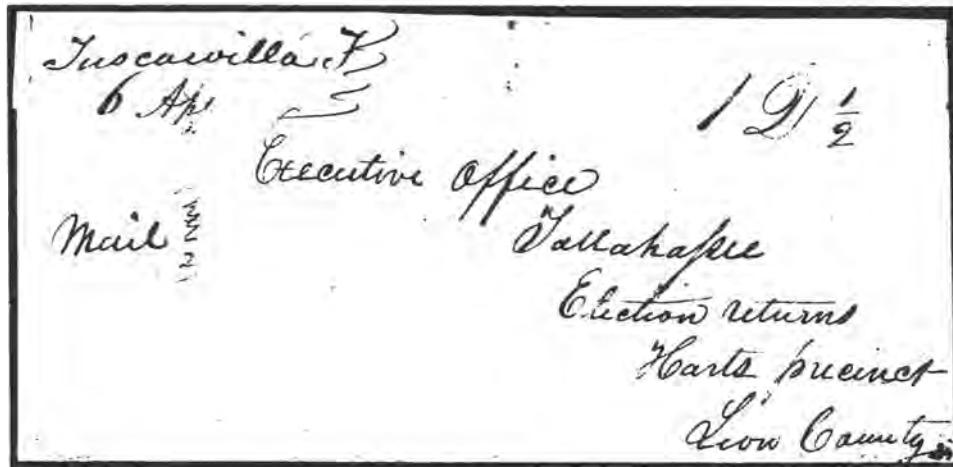 Tuscawilla F
6 Apl
1 D 1/2
Executive Office
Mail
Tallahassee
Election returns
Harts precinct
Leon County